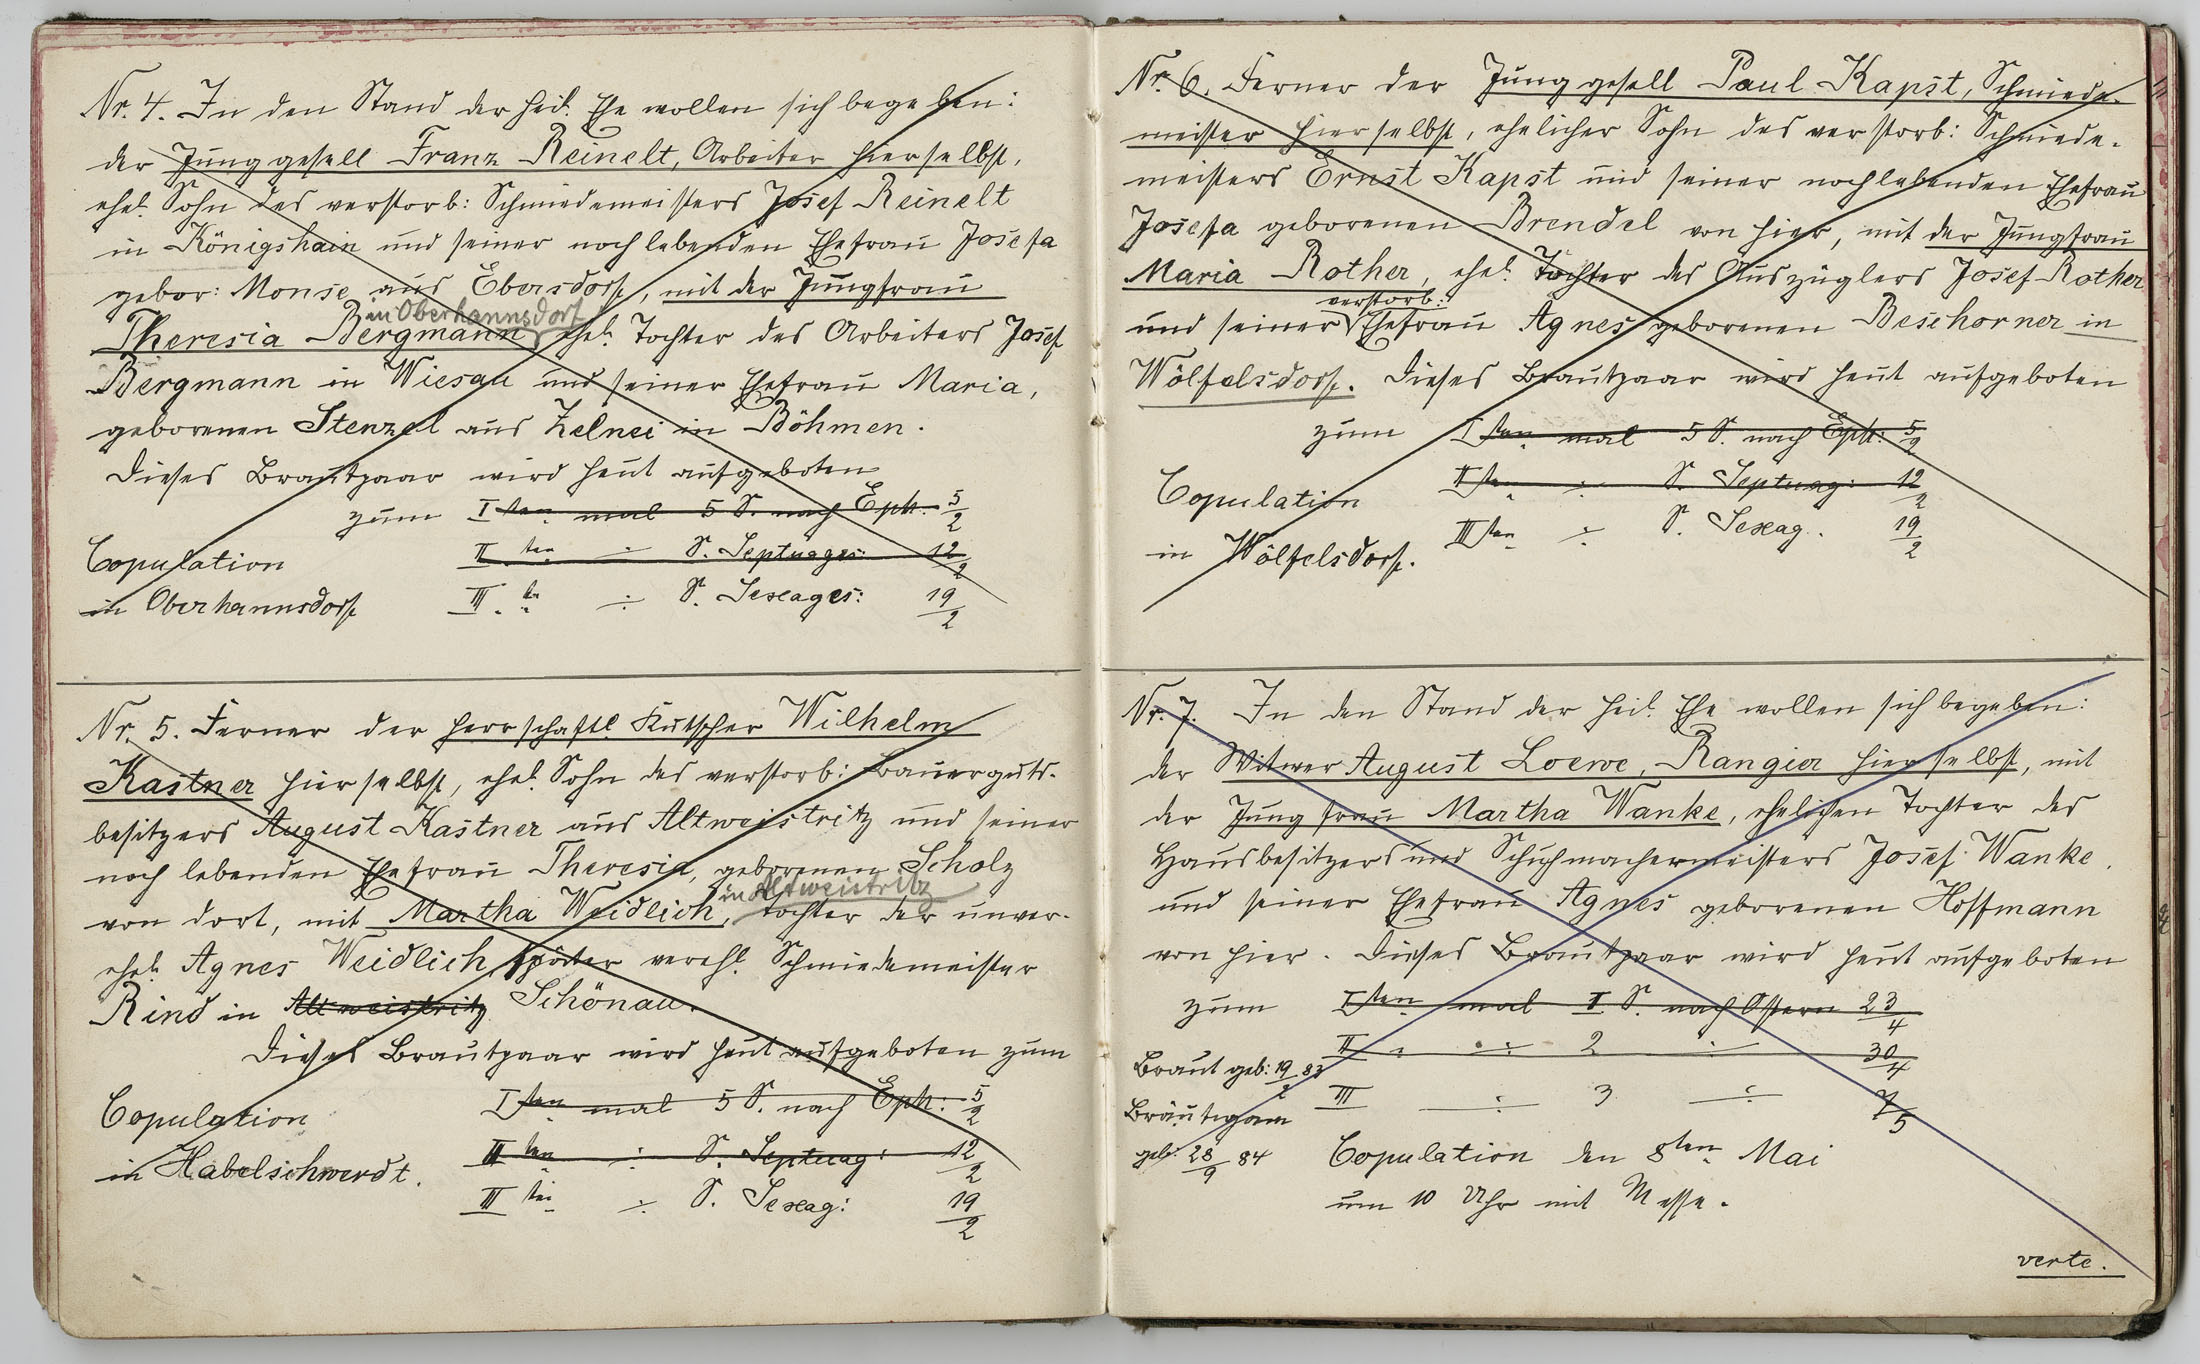 Nr. 4. In den Stand der heil. Ehe wollen sich begeben:
der Junggesell Franz Reinelt, Arbeiter hierselbst,
ehel. Sohn des verstorb: Schmiedemeisters Josef Reinelt
in Königshain und seiner noch lebenden Ehefrau Josefa
gebor: Monse aus Ebersdorf, mit der Jungfrau
in Oberhannsdorf
Theresia Bergmann, ehel. Tochter des Arbeiters Josef
Bergmann in Wiesau und seiner Ehefrau Maria,
geborenen Stenzel aus Zelnei in Böhmen.
Dieses Brautpaar wird heut aufgeboten
zum Iten mal 5 S. nach Eph: 5/2
Copulation
II ten ÷ S. Septuages: 12/2
in Oberhannsdorf
III. ten ÷ S. Sexages: 19/2
Nr. 5. Ferner der herrschaftl. Kutscher Wilhelm
Kastner hierselbst, ehel. Sohn des verstorb: Bauerguts-
besitzers August Kastner aus Altweistritz und seiner
noch lebenden Ehefrau Theresia, geborenen Scholz
in Altweistritz
von dort, mit Martha Weidlich, Tochter der unver-
ehel. Agnes Weidlich, später verehl. Schmiedemeister
Rind in Altweistritz Schönau.
Dieses Brautpaar wird heut aufgeboten zum
Iten mal 5 S. nach Eph: 5/2
Copulation
II ten ÷ S. Septuag: 12/2
in Habelschwerdt.
III ten ÷ S. Sexag: 19/2
Nr. 6. Ferner der Junggesell Paul Kapst, Schmiede-
meister hierselbst, ehelicher Sohn des verstorb: Schmiede-
meisters Ernst Kapst und seiner noch lebenden Ehefrau
Josefa geborenen Brendel von hier, mit der Jungfrau
Maria Rother, ehel. Tochter des Auszüglers Josef Rother
verstorb:
und seiner Ehefrau Agnes geborenen Beschorner in
Wölfelsdorf. Dieses Brautpaar wird heut aufgeboten
zum Iten mal 5 S. nach Eph: 5/2
Copulation
IIten ÷ S. Septuag: 12/2
in Wölfelsdorf.
IIIten ÷ S. Sexag. 19/2
Nr. 7. In den Stand der heil. Ehe wollen sich begeben:
der Witwer August Loewe, Rangier hierselbst, mit
der Jungfrau Martha Wanke, ehelichen Tochter des
Hausbesitzers und Schuhmachermeisters Josef Wanke
und seiner Ehefrau Agnes geborenen Hoffmann
von hier. Dieses Brautpaar wird heut aufgeboten
zum Iten mal I S. nach Ostern 23/4
II " ÷ 2 ÷ 30/4
Braut geb: 83
III ÷ 3 ÷ 7/5
Bräutigam
geb: 28/9 84
Copulation den 8ten Mai
um 10 Uhr mit Messe.
verte.